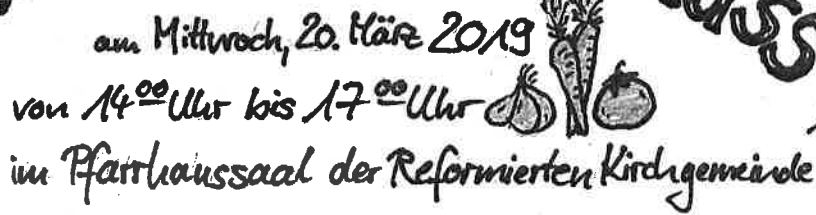 am Mittwoch, 20. März 2019
von 14⁰⁰ Uhr bis 17⁰⁰ Uhr
im Pfarrhaussaal der Reformierten Kirchgemeinde